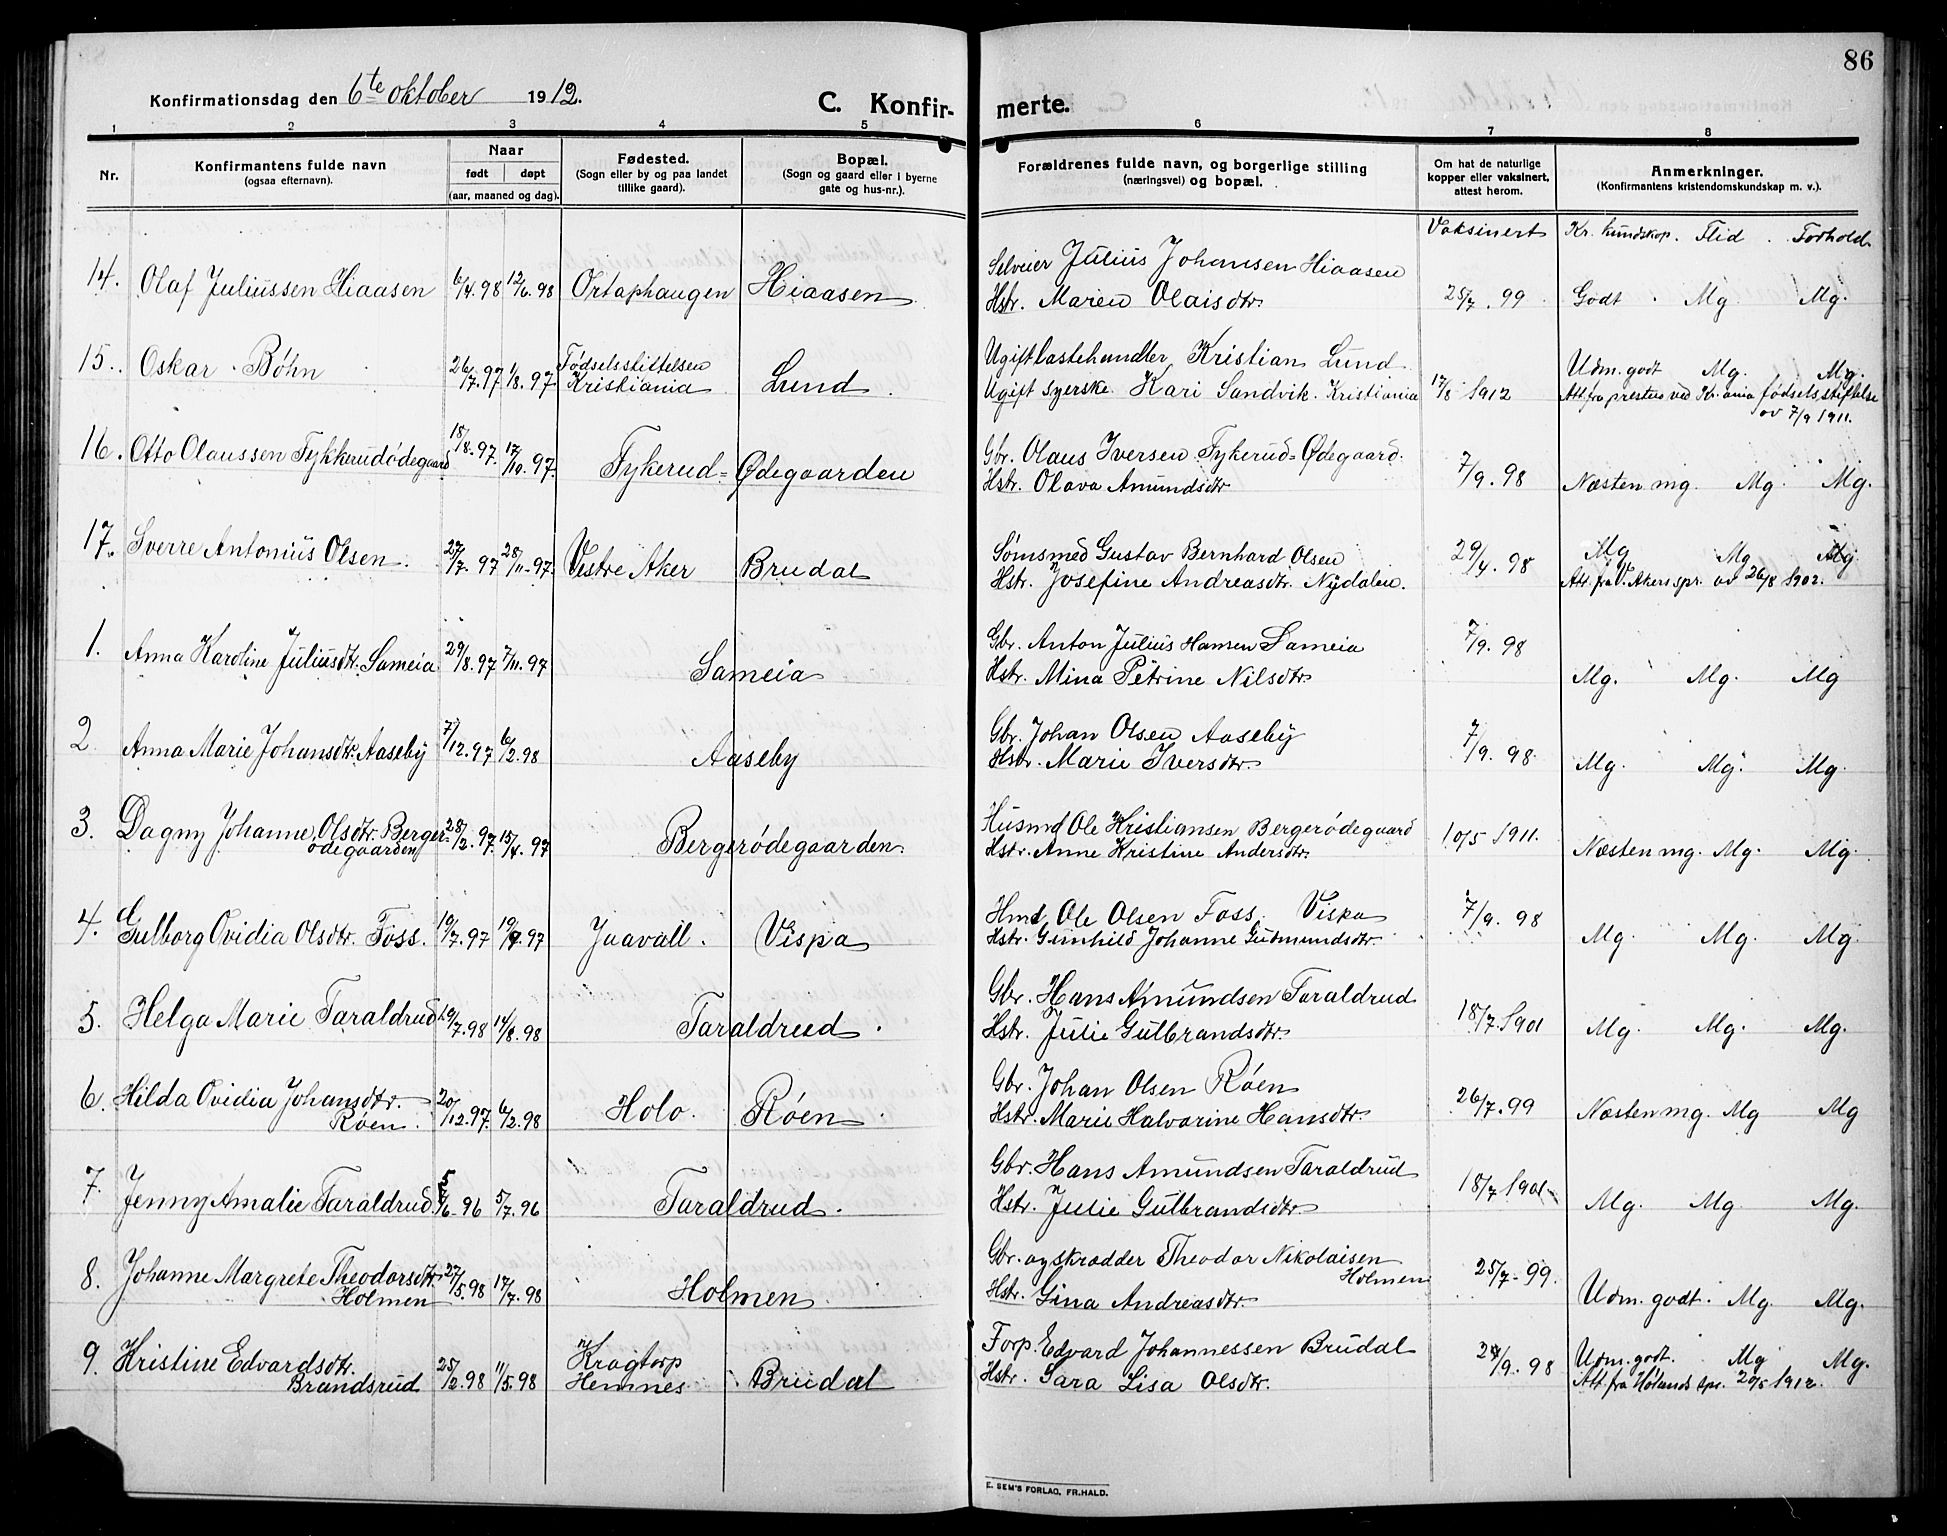 86
Konfirmationsdag den 6te oktober 1912.
C. Konfirmerte.
1 2 3 4 5 6 7 8
Nr.
Konfirmantens fulde navn
(ogsaa efternavn).
Naar
født døpt
(aar, maaned og dag).
Fødested.
(Sogn eller by og paa landet
tillike gaard).
Bopæl.
(Sogn og gaard eller i byerne
gate og hus-nr.).
Forældrenes fulde navn, og borgerlige stilling
(næringsvei) og bopæl.
Om hat de naturlige
kopper eller vaksinert,
attest herom.
Anmerkninger.
(Konfirmantens kristendomskundskap m. v.).
Vaksinert Kr. kundskap. Flid . Forhold
14. Olaf Juliussen Hiaasen 6/4.98 12/6.98 Ortaphaugen Hiaasen
Selveier Julius Johansen Hiaasen
Hstr. Maren Olaisdtr. 25/7.99 Godt . Mg. Mg.
15. Oskar Bøhn 26/7.97 1/8.97 Fødselsstiftelsen
Kristiania Lund
Ugift lastehandler Kristian Lund
Ugift syerske Kari Sandvik. Kristiania 17/8 1912 Udm. godt Mg. Mg.
Att. fra presten ved Kr.ania fødselsstiftelse
av 7/9 1911.
16. Otto Olaussen Fykkerudødegaard 18/8.97. 17/10.97. Fykerud=Ødegaarden
Gbr. Olaus Iversen Fykerud=Ødegaard.
Hstr. Olava Amundsdtr 7/9.98 Næsten mg. Mg. Mg.
17. Sverre Antonius Olsen. 27/7.97 28/11.97. Vestre Aker Brudal
Sømsmed Gustav Bernhard Olsen
Hstr. Josefine Andreasdtr. Nydalen. 29/4.98 Mg Mg Mg.
Att. fra V. Akers spr. av 26/8 1902.
1. Anna Karoline Juliusdtr. Sameia 29/8.97 7/11.97 Sameia
Gbr. Anton Julius Hansen Sameia
Hstr. Mina Petrine Nilsdtr 7/9.98 Mg. Mg. Mg
2 Anna Marie Johansdtr. Aaseby 7/12.97 6/2.98 Aaseby
Gbr. Johan Olsen Aaseby
Hstr. Marie Iversdtr. 7/9.98. Mg. Mg. Mg.
3. Dagny Johanne Olsdtr. Berger-
ødegaarden 28/2.97. 15/4.97 Bergerødegaarden.
Husmd Ole Kristiansen Bergerødegaard
Hstr. Anne Kristine Andersdtr. 10/5 1911. Næsten mg. Mg. Mg.
4. Gulborg Ovidia Olsdtr. Foss. 10/7.97 19/9.97 Jaavall. Vispa
Hmd Ole Olsen Foss. Viska
Hstr. Gunhild Johanne Gudmundsdtr. 7/9.98 Mg. Mg. Mg.
5. Helga Marie Taraldrud 19/7.98 14/8.98 Taraldrud.
Gbr. Hans Amundsen Taraldrud
Hstr. Julie Gulbrandsdtr. 18/7.1901 Mg. Mg. Mg.
6. Hilda Ovidia Johansdtr.
Røen. 20/12.97. 6/2.98 Holo. Røen.
Gbr. Johan Olsen Røen
Hstr. Marie Halvorine Hansdtr. 26/7.99 Næsten mg. Mg Mg
7. Jenny Amalie Taraldrud 5/6.96 5/7.96 Taraldrud.
Gbr. Hans Amundsen Taraldrud
Hstr. Julie Gulbrandsdtr 18/7 1901 Mg. Mg. Mg.
8. Johanne Margrete Theodorsdtr.
Holmen 27/5.98 17/7.98 Holmen.
Gbr. og skrædder Theodor Nikolaisen
Holmen
Hstr. Gina Andreasdtr. 25/7.99. Udm. godt. Mg. Mg.
9. Kristine Edvardsdtr.
Brandsrud 25/2.98 11/5.98 Kragtorp
Hemnes Brudal
Forp. Edvard Johannessen Brudal
Hstr. Sara Lisa Olsdtr. /9.98 Udm. godt. Mg Mg.
Att. fra Hølands spr. 20/5 1912.
E. SEM'S FORLAG, FR.HALD.